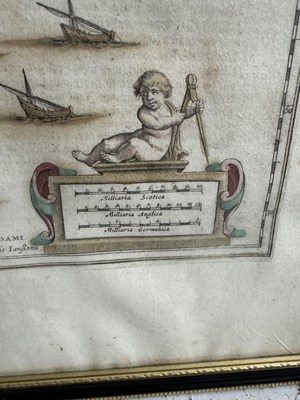 Milliaria Scotica
Milliaria Anglica
Milliaria Germanica
DAMI.
is Ianssonii